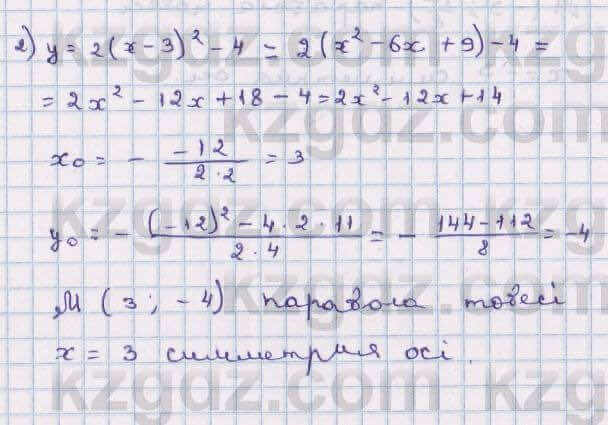 2) y = 2(x-3)² - 4 = 2(x² - 6x + 9) - 4 =
= 2x² - 12x + 18 - 4 = 2x² - 12x + 14
x₀ = - -12 / 2·2 = 3
y₀ = - (-12)² - 4·2·11 / 2·4 = - 144-112 / 8 = -4
M (3; -4) парабола төбесі
x = 3 симметрия осі.
kzgdz.com
kzgdz.com
kzgdz.com
kzgdz.com